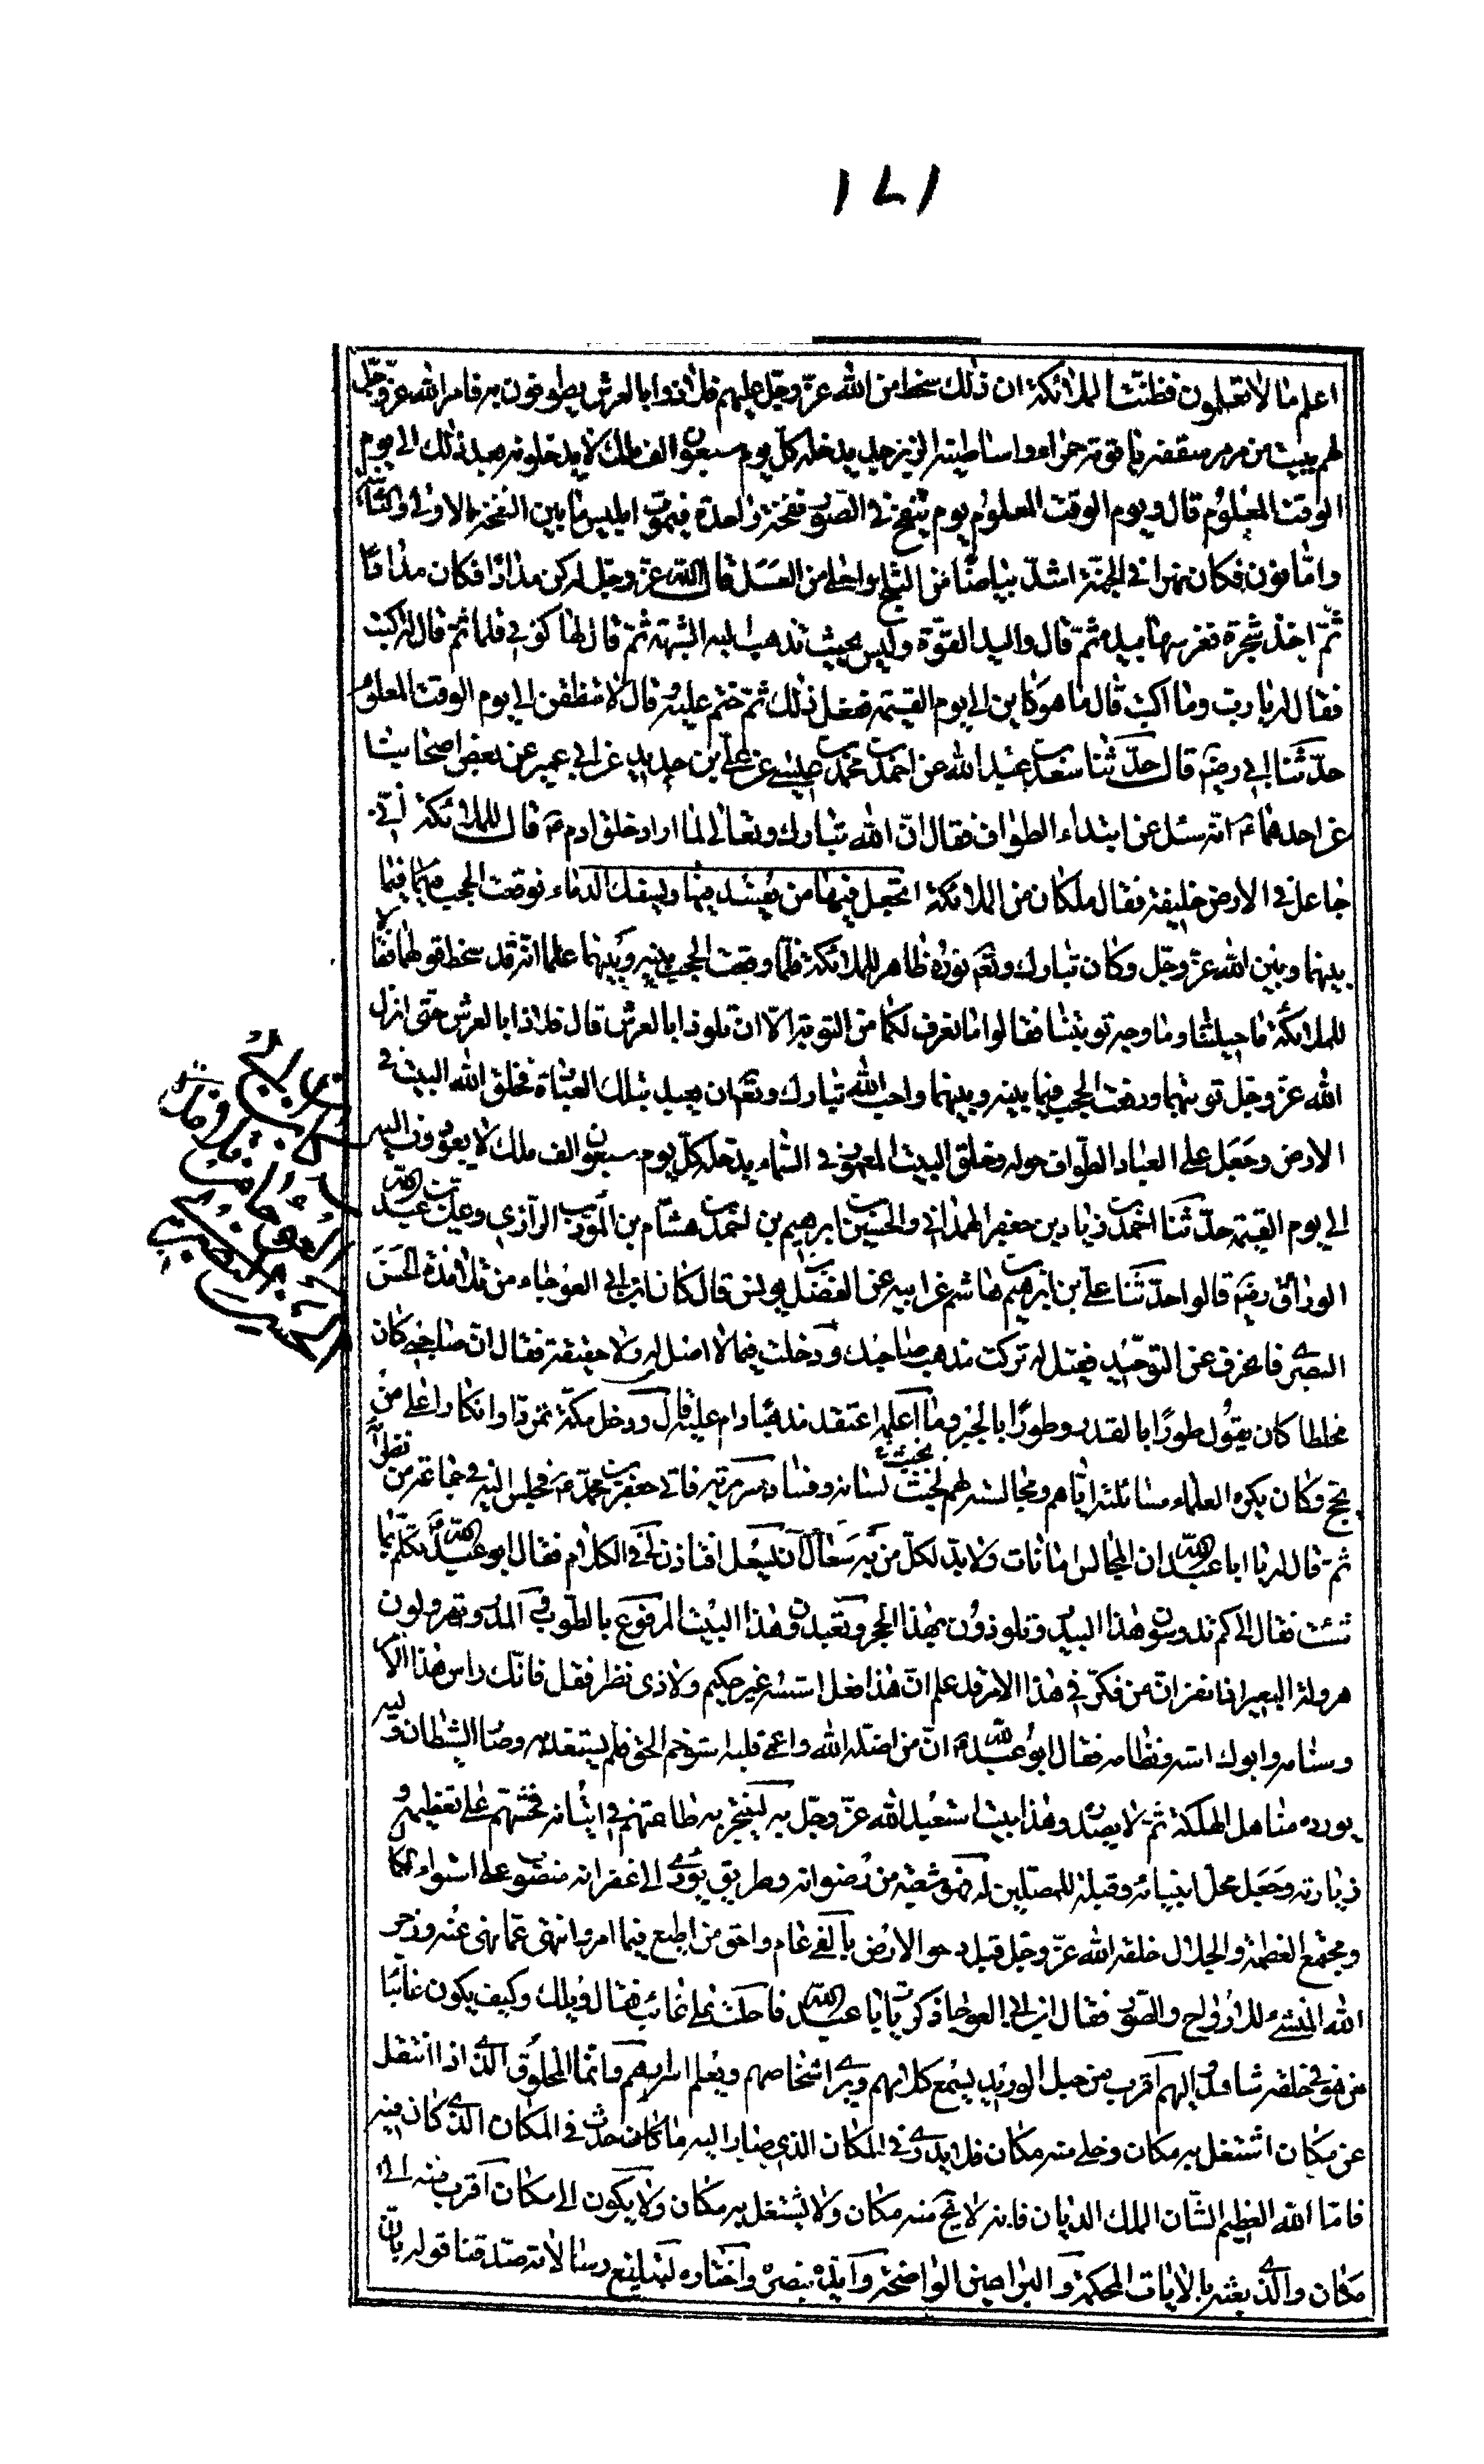 ١٧١
اعلم ما لا تعلمون فظنّت الملائكة ان ذلك سخط من الله عزّ وجلّ عليهم فلاذوا بالعرش يطوفون به فامر الله عزّ وجلّ
لهم ببيت من مرمر سقفه ياقوتة حمراء واساطينه الزبرجد يدخله كلّ يوم سبعون الف ملك لا يدخلونه بعد ذلك الى يوم
الوقت المعلوم قال ويوم الوقت المعلوم يوم ينفخ في الصور نفخة واحدة فيموت ابليس ما بين النفخة الاولى والثانية
وامّا نون فكان نهرا في الجنّة اشدّ بياضا من الثلج واحلى من العسل قال الله عزّ وجلّ له كن مدادا فكان مدادا
ثمّ اخذ شجرة فغرسها بيده ثمّ قال واليد القوّة وليس بحيث تذهب اليه المشبّهة ثمّ قال لها كوني قلما ثمّ قال له اكتب
فقال له يا ربّ وما اكتب قال ما هو كاين الى يوم القيمة ففعل ذلك ثمّ ختم عليه وقال لا تنطقن الى يوم الوقت المعلوم
حدّثنا ابي رضه قال حدّثنا سعد بن عبد الله عن احمد بن محمد بن عيسى عن علي بن حديد عن ابي عمير عن بعض اصحابنا
عن احدهما ع انّه سئل عن ابتداء الطواف فقال انّ الله تبارك وتعالى لما اراد خلق ادم ع قال للملائكة اني
جاعل في الارض خليفة فقال ملكان من الملائكة اتجعل فيها من يفسد فيها ويسفك الدماء فوقعت الحجب فيما
بينهما وبين الله عزّ وجلّ وكان تبارك وتعم نوره ظاهر للملائكة فلمّا وقعت الحجب بينه وبينهما علما انّه قد سخط قولهما فقالا
للملائكة ما حيلتنا وما وجه توبتنا فقالوا ما نعرف لكما من التوبة الّا ان تلوذا بالعرش قال فلاذا بالعرش حتى انزل
الله عزّ وجل توبتهما ورفعت الحجب فيما بينه وبينهما واحبّ الله تبارك وتعم ان يعبد بتلك العبادة فخلق الله البيت في
الارض وجعل على العباد الطواف حوله وخلق البيت المعمور في السّماء يدخله كلّ يوم سبعون الف ملك لا يعودون اليه
الى يوم القيمة حدّثنا احمد بن زياد بن جعفر الهمداني والحسين بن ابرهيم بن احمد بن هشام بن المؤدب الرّازي وعلي بن عبد الله
الورّاق رضه قالوا حدّثنا علي بن ابرهيم بن هاشم عن ابيه عن الفضل بن يونس قال كان ابن ابي العوجاء من تلامذة الحسن
البصري فانحرف عن التوحيد فقيل له تركت مذهب صاحبك ودخلت فيما لا اصل له ولا حقيقة فقال انّ صاحبي كان
مخلطا كان يقول طورًا بالقدر وطورًا بالجبر وما اعلمه اعتقد مذهبًا دام عليه قال ودخل مكّة تمرّدا وانكارا على من
يحج وكان يكره العلماء مسائلته ايّاهم ومجالسته لهم لخبث لسانه وفساد سريرته فاتى جعفر بن محمد ع فجلس اليه في جماعة من نظرائه
ثمّ قال له يا ابا عبد الله ان المجالس امانات ولا بدّ لكلّ من به سعال ان يسعل افتاذن لي في الكلام فقال ابو عبد الله ع تكلّم بما
شئت فقال الى كم تدوسون هذا البيدر وتلوذون بهذا الحجر وتعبدون هذا البيت المرفوع بالطوب والمدر وتهرولون
هرولة البعير اذا نفر انّ من فكّر في هذا الامر قد علم انّ هذا فعل اسّسه غير حكيم ولا ذي نظر فقل فانّك راس هذا الامر
وسنامه وابوك اسّه ونظامه فقال ابو عبد الله ع انّ من اضلّه الله واعمى قلبه استوخم الحق فلم يستعذبه وصار الشيطان وليه
يورده مناهل الهلكة ثمّ لا يصدره وهذا بيت استعبد الله عزّ وجلّ به ليختبر به طاعتهم في اتيانه فحثّهم على تعظيمه و
زيارته وجعل محلّ انبيائه وقبلة للمصلّين له فهو شعبة من رضوانه وطريق يؤدّي الى غفرانه منصوب على استواء الكمال
ومجتمع العظمة والجلال خلقه الله عزّ وجلّ قبل دحو الارض بالفي عام واحق من اطيع فيما امر وانتهى عمّا نهى عنه وزجر
الله المنشئ للارواح والصور فقال ابن ابي العوجا ذكرت يا ابا عبد الله فاحلت على غائب فقال ويلك وكيف يكون غائبًا
من هو في خلقه شاهد واليهم اقرب من حبل الوريد يسمع كلامهم ويرى اشخاصهم ويعلم اسرارهم وانّما المخلوق الذي اذا انتقل
عن مكان اشتغل به مكان وخلى منه مكان فلا يدري في المكان الذي صار اليه ما حدث في المكان الذي كان فيه
فامّا الله العظيم الشّان الملك الديّان فانه لا يخ منه مكان ولا يشتغل به مكان ولا يكون الى مكان اقرب منه الى
مكان والذي بعثه بالايات المحكمة والبراهين الواضحة وايّده بنصره واختاره لتبليغ رسالاته صدّقنا قوله بانّ